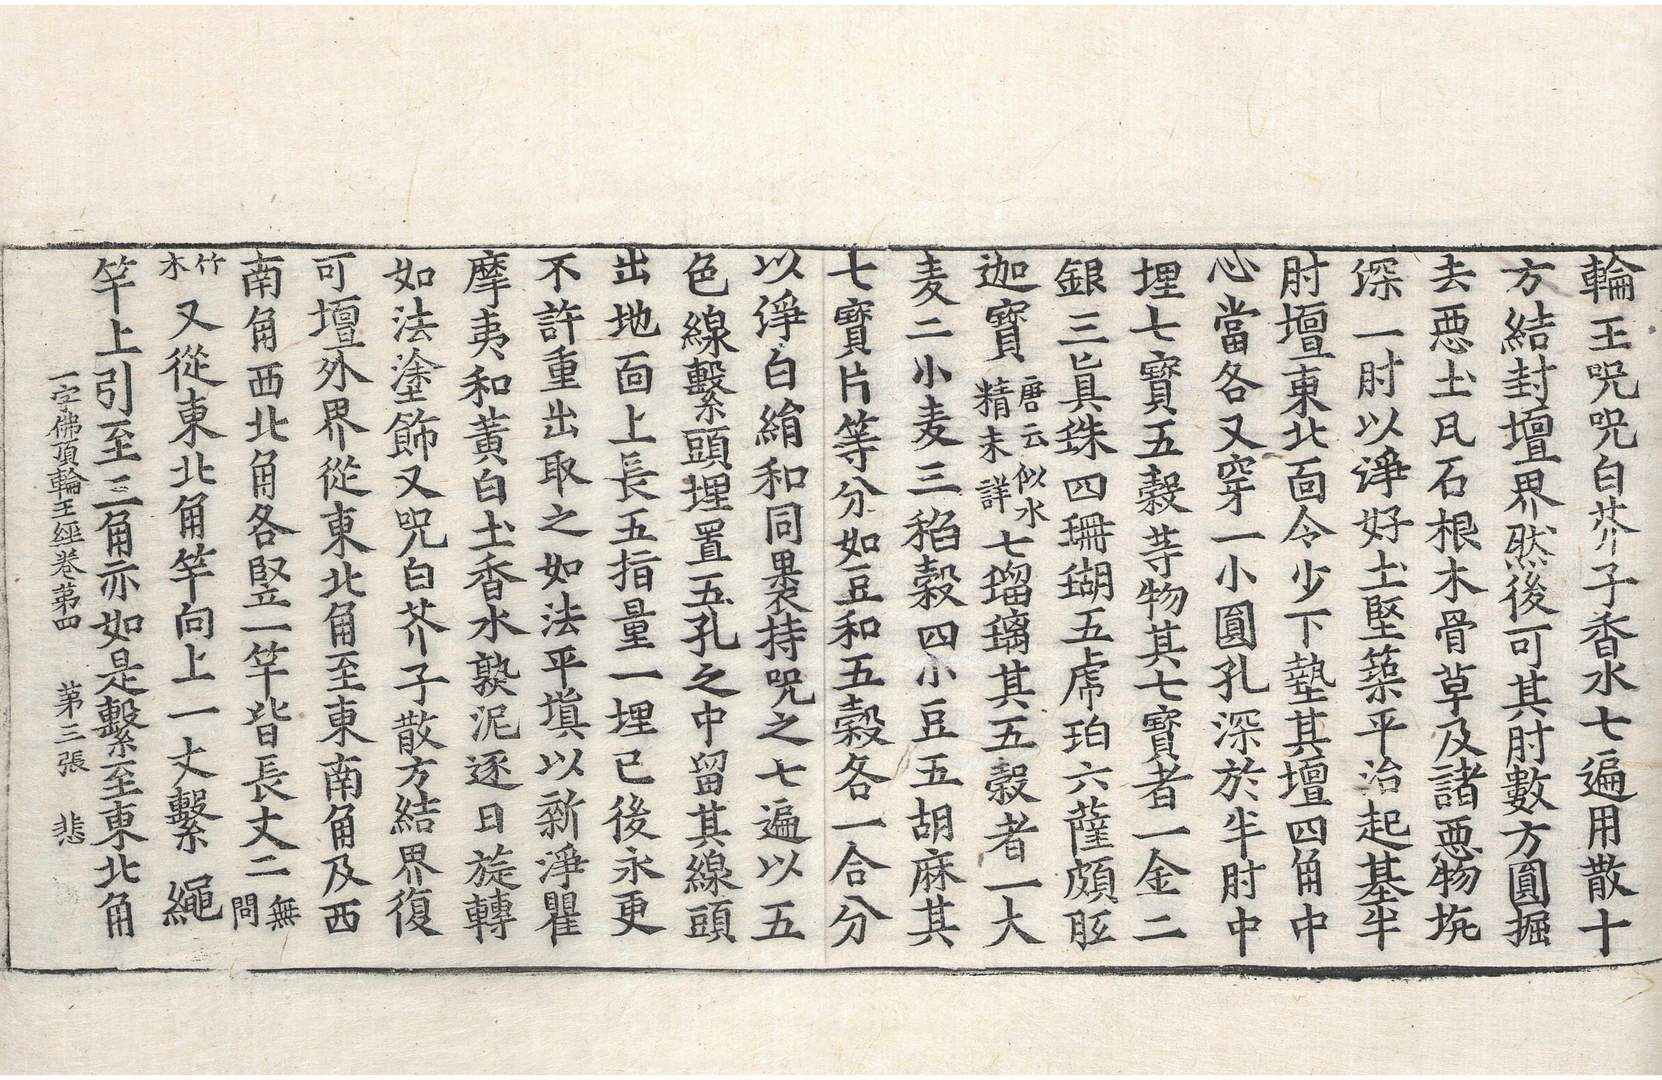 輪王呪呪白芥子香水七遍用散十
方結封壇界然後可其肘數方圓掘
去惡土凡石根木骨草及諸惡物坑
深一肘以淨好土堅築平治起基半
肘壇東北面令少下墊其壇四角中
心當各又穿一小圓孔深於半肘中
埋七寶五穀等物其七寶者一金二
銀三眞珠四珊瑚五虎珀六薩頗胝
迦寶唐云似水精未詳七瑠璃其五穀者一大
麦二小麦三稻穀四小豆五胡麻其
七寶片等分如豆和五穀各一合分
以淨白絹和同裹持呪之七遍以五
色線繫頭埋置五孔之中留其線頭
出地面上長五指量一埋已後永更
不許重出取之如法平塡以新淨瞿
摩夷和黃白土香水熟泥逐日旋轉
如法塗飾又呪白芥子散方結界復
可壇外界從東北角至東南角及西
南角西北角各竪一竿皆長丈二無問
竹木又從東北角竿向上一丈繫繩
竿上引至三角亦如是繫至東北角
一字佛頂輪王經卷第四 第三張 悲